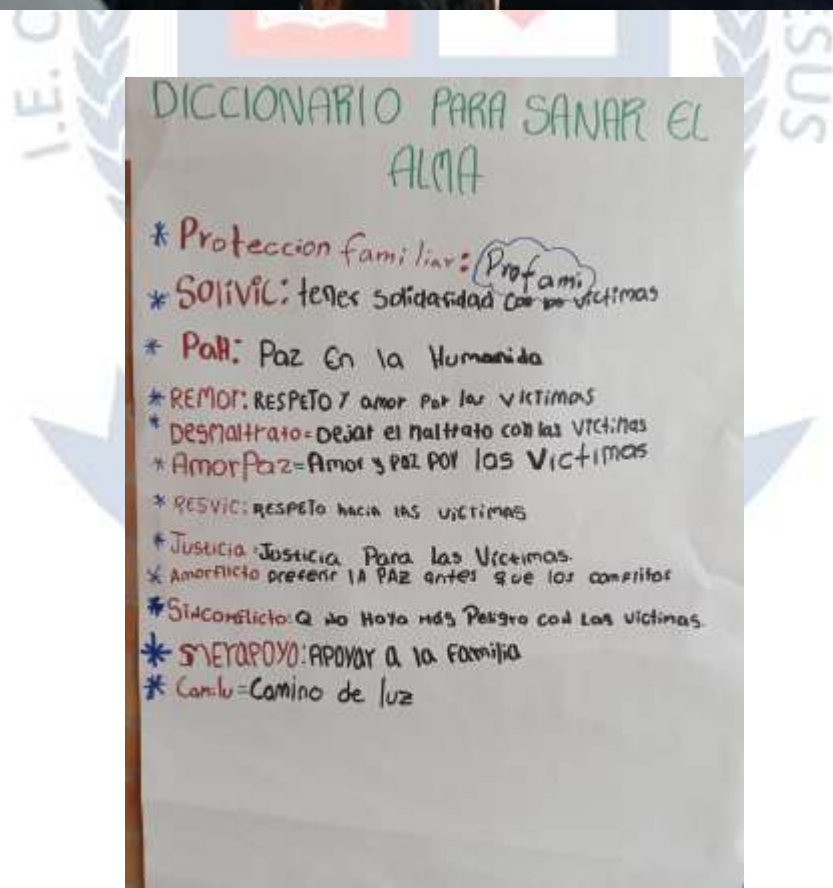 I.E. C
ESUS
DICCIONARIO PARA SANAR EL
ALMA
* Proteccion familiar: Profami
* SOliVic: tener solidaridad con las victimas
* PaH: Paz En la Humanida
* REMOr: RESPETO Y amor Por las VICTimas
* DesMaltrato = Dejar el maltrato con las Victimas
* Amor Paz = Amor y paz por las Victimas
* RESVIC: RESPETO hacia LAS victimas
* Justicia: Justicia Para las Victimas.
* Amorflicto preferir lA PAZ antes que los conflitos
* Sinconflicto: Q No Haya más Peligro con Las victimas.
* : APOyar a la familia
* Camilu = Camino de luz